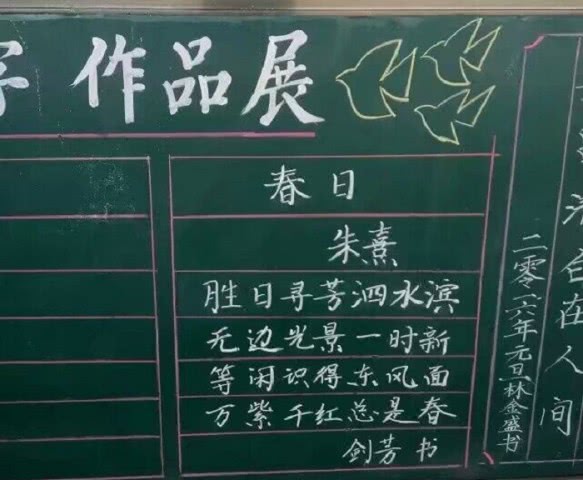 作品展
春日
朱熹
胜日寻芳泗水滨
无边光景一时新
等闲识得东风面
万紫千红总是春
剑芳书
在人间
二零一六年元旦林金盛书